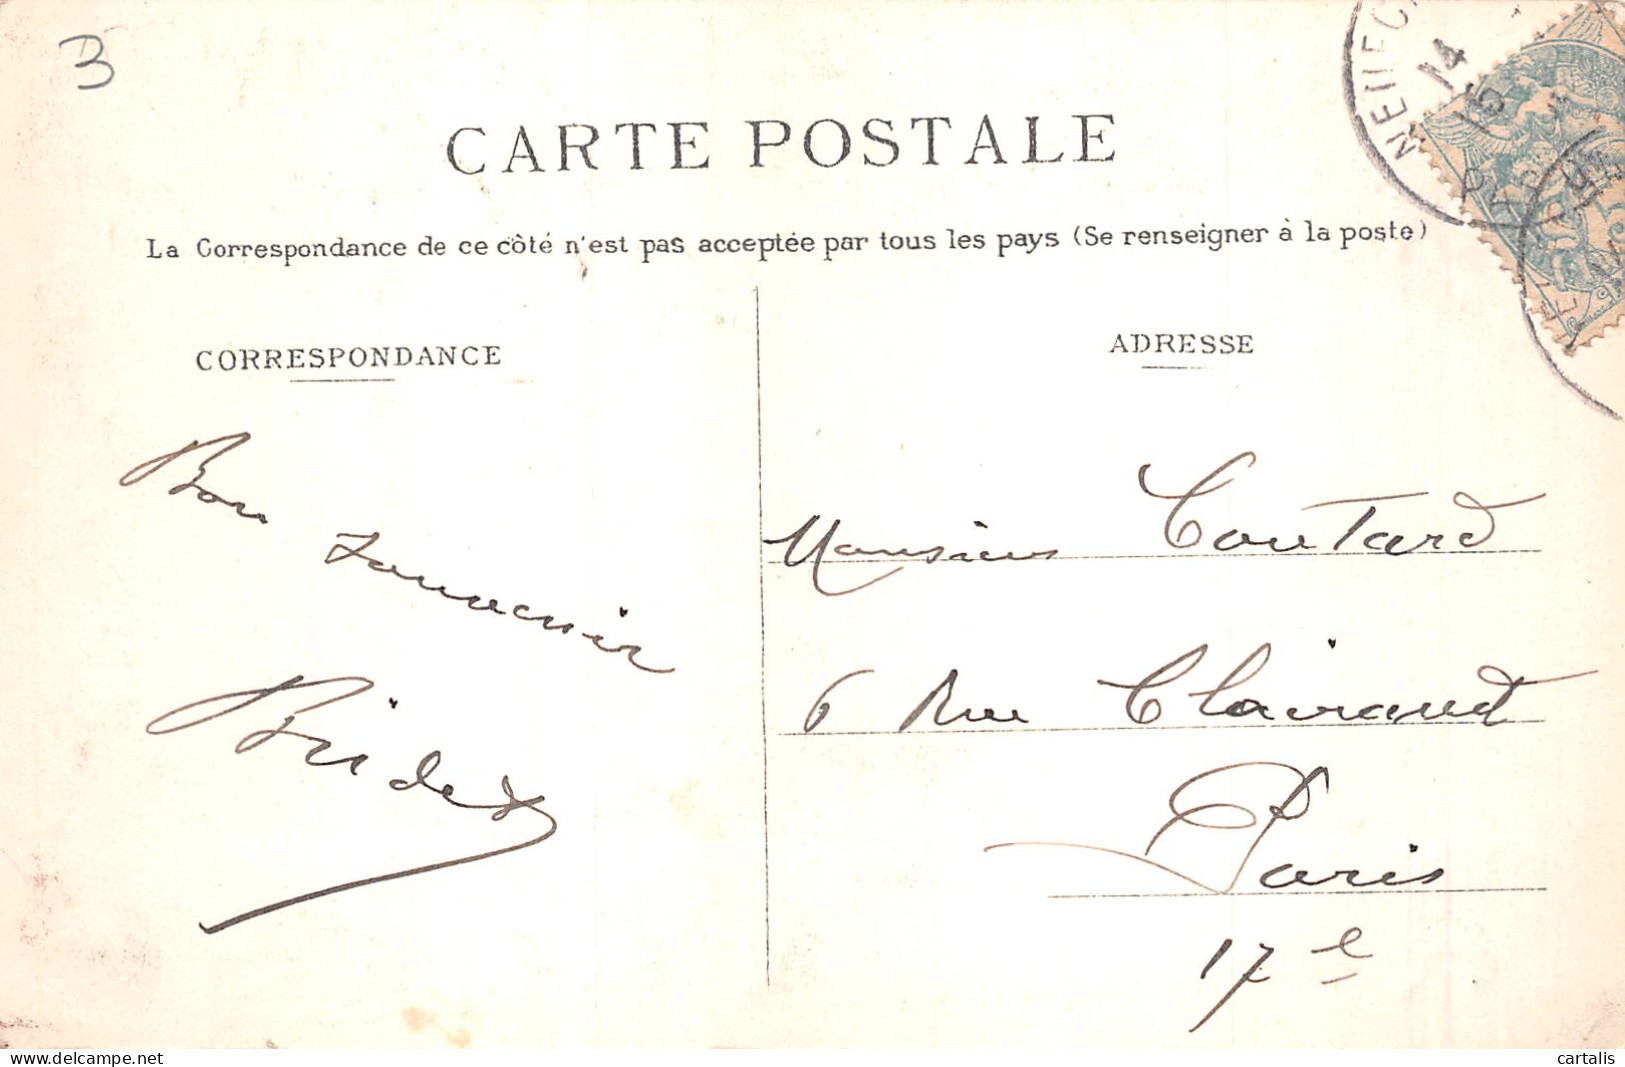 3
CARTE POSTALE
La Correspondance de ce côté n'est pas acceptée par tous les pays (Se renseigner à la poste)
CORRESPONDANCE
ADRESSE
Bon
souvenir
Bridet
Monsieur Coutard
6 Rue Clairaut
Paris
17e
14
www.delcampe.net
cartalis